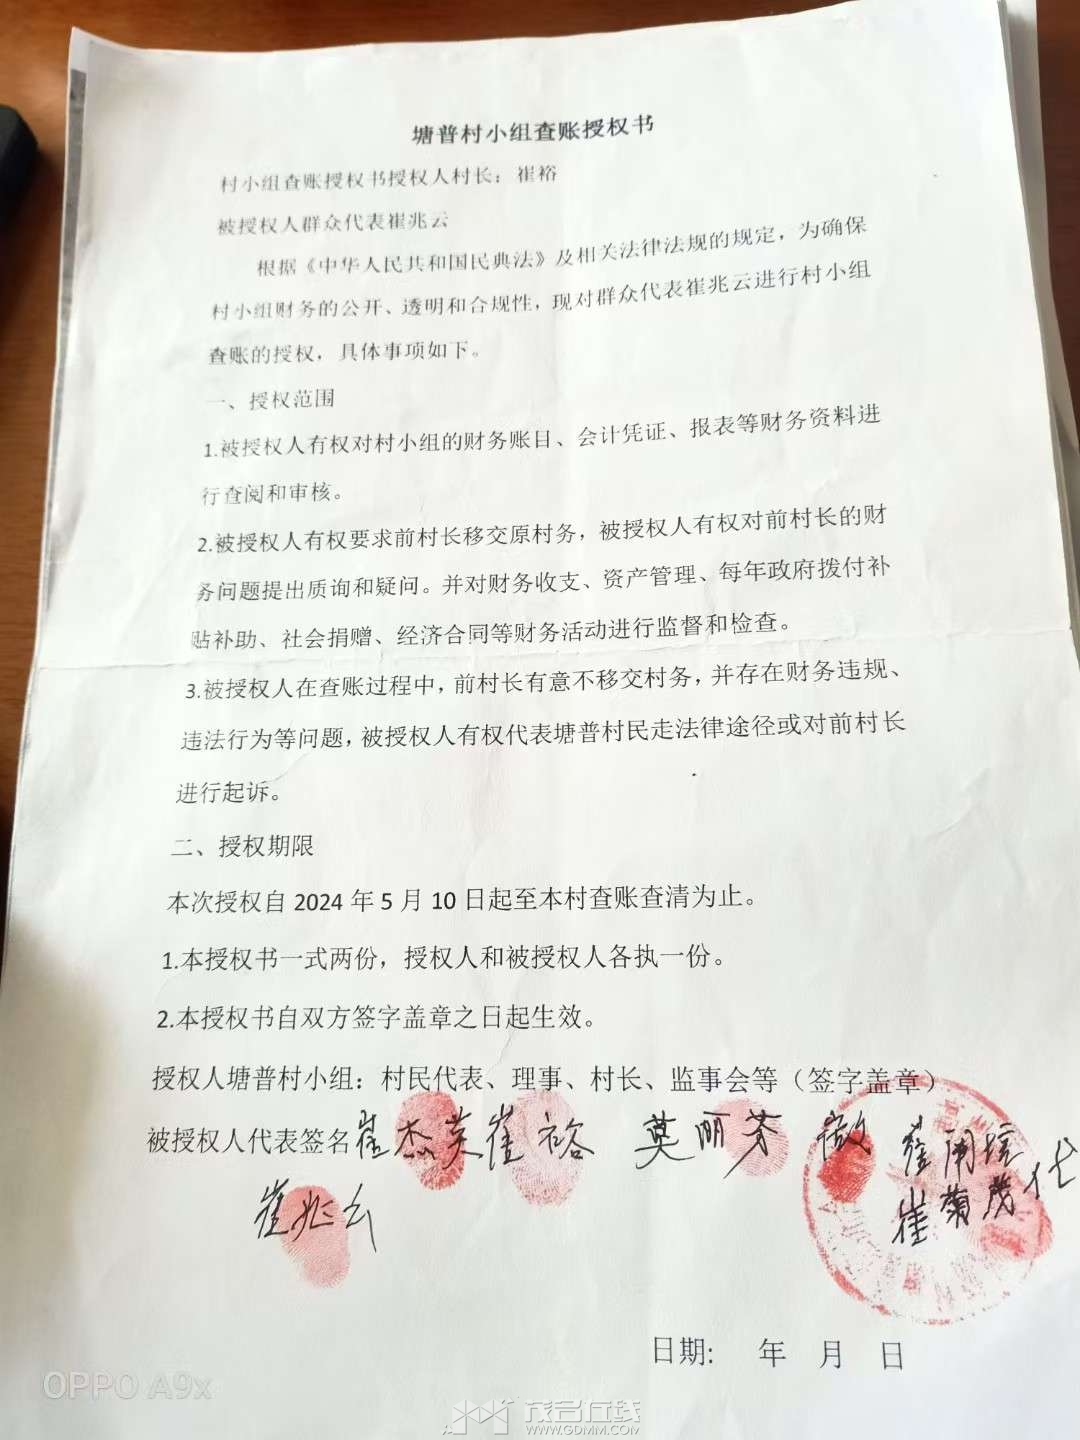 塘普村小组查账授权书
村小组查账授权书授权人村长：崔裕
被授权人群众代表崔兆云
根据《中华人民共和国民典法》及相关法律法规的规定，为确保
村小组财务的公开、透明和合规性，现对群众代表崔兆云进行村小组
查账的授权，具体事项如下。
一、授权范围
1.被授权人有权对村小组的财务账目、会计凭证、报表等财务资料进
行查阅和审核。
2.被授权人有权要求前村长移交原村务，被授权人有权对前村长的财
务问题提出质询和疑问。并对财务收支、资产管理、每年政府拨付补
贴补助、社会捐赠、经济合同等财务活动进行监督和检查。
3.被授权人在查账过程中，前村长有意不移交村务，并存在财务违规、
违法行为等问题，被授权人有权代表塘普村民走法律途径或对前村长
进行起诉。
二、授权期限
本次授权自 2024 年 5 月 10 日起至本村查账查清为止。
1.本授权书一式两份，授权人和被授权人各执一份。
2.本授权书自双方签字盖章之日起生效。
授权人塘普村小组：村民代表、理事、村长、监事会等（签字盖章）
被授权人代表签名 崔杰英 崔裕 莫丽芬
崔菊茂代
崔兆云
日期: 年 月 日
OPPO A9x
茂名在线
WWW.GDMM.COM